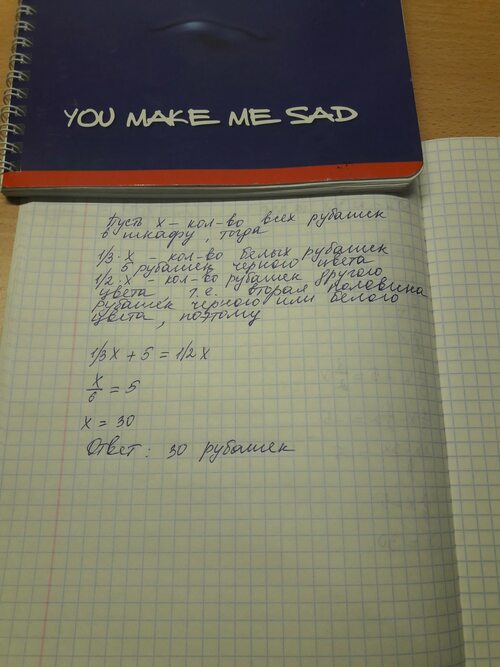 YOU MAKE ME SAD
Пусть x – кол-во всех рубашек
в шкафу, тогда
1/3·x – кол-во белых рубашек
5 рубашек черного цвета
1/2·x – кол-во рубашек другого
цвета, т.е. вторая половина
рубашек черного или белого
цвета, поэтому
1/3x + 5 = 1/2x
x/6 = 5
x = 30
Ответ: 30 рубашек